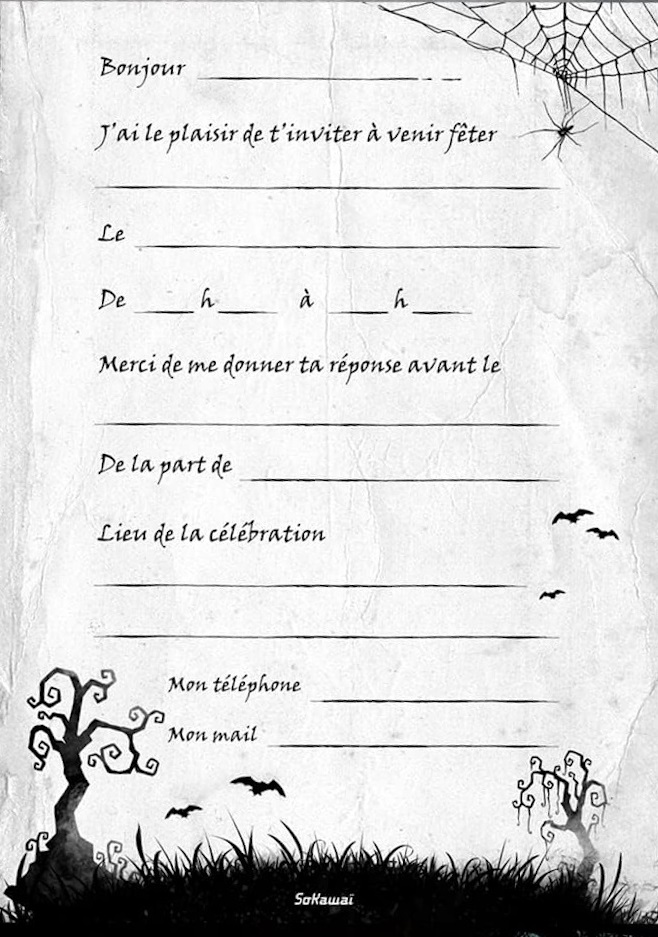 Bonjour
J'ai le plaisir de t'inviter à venir fêter
Le
De h à h
Merci de me donner ta réponse avant le
De la part de
Lieu de la célébration
Mon téléphone
Mon mail
SoKawaï